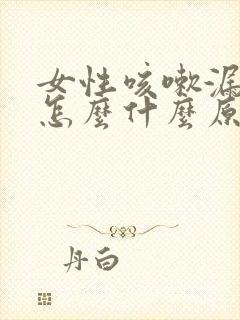 女性咳嗽漏
怎麼什麼原
丹白